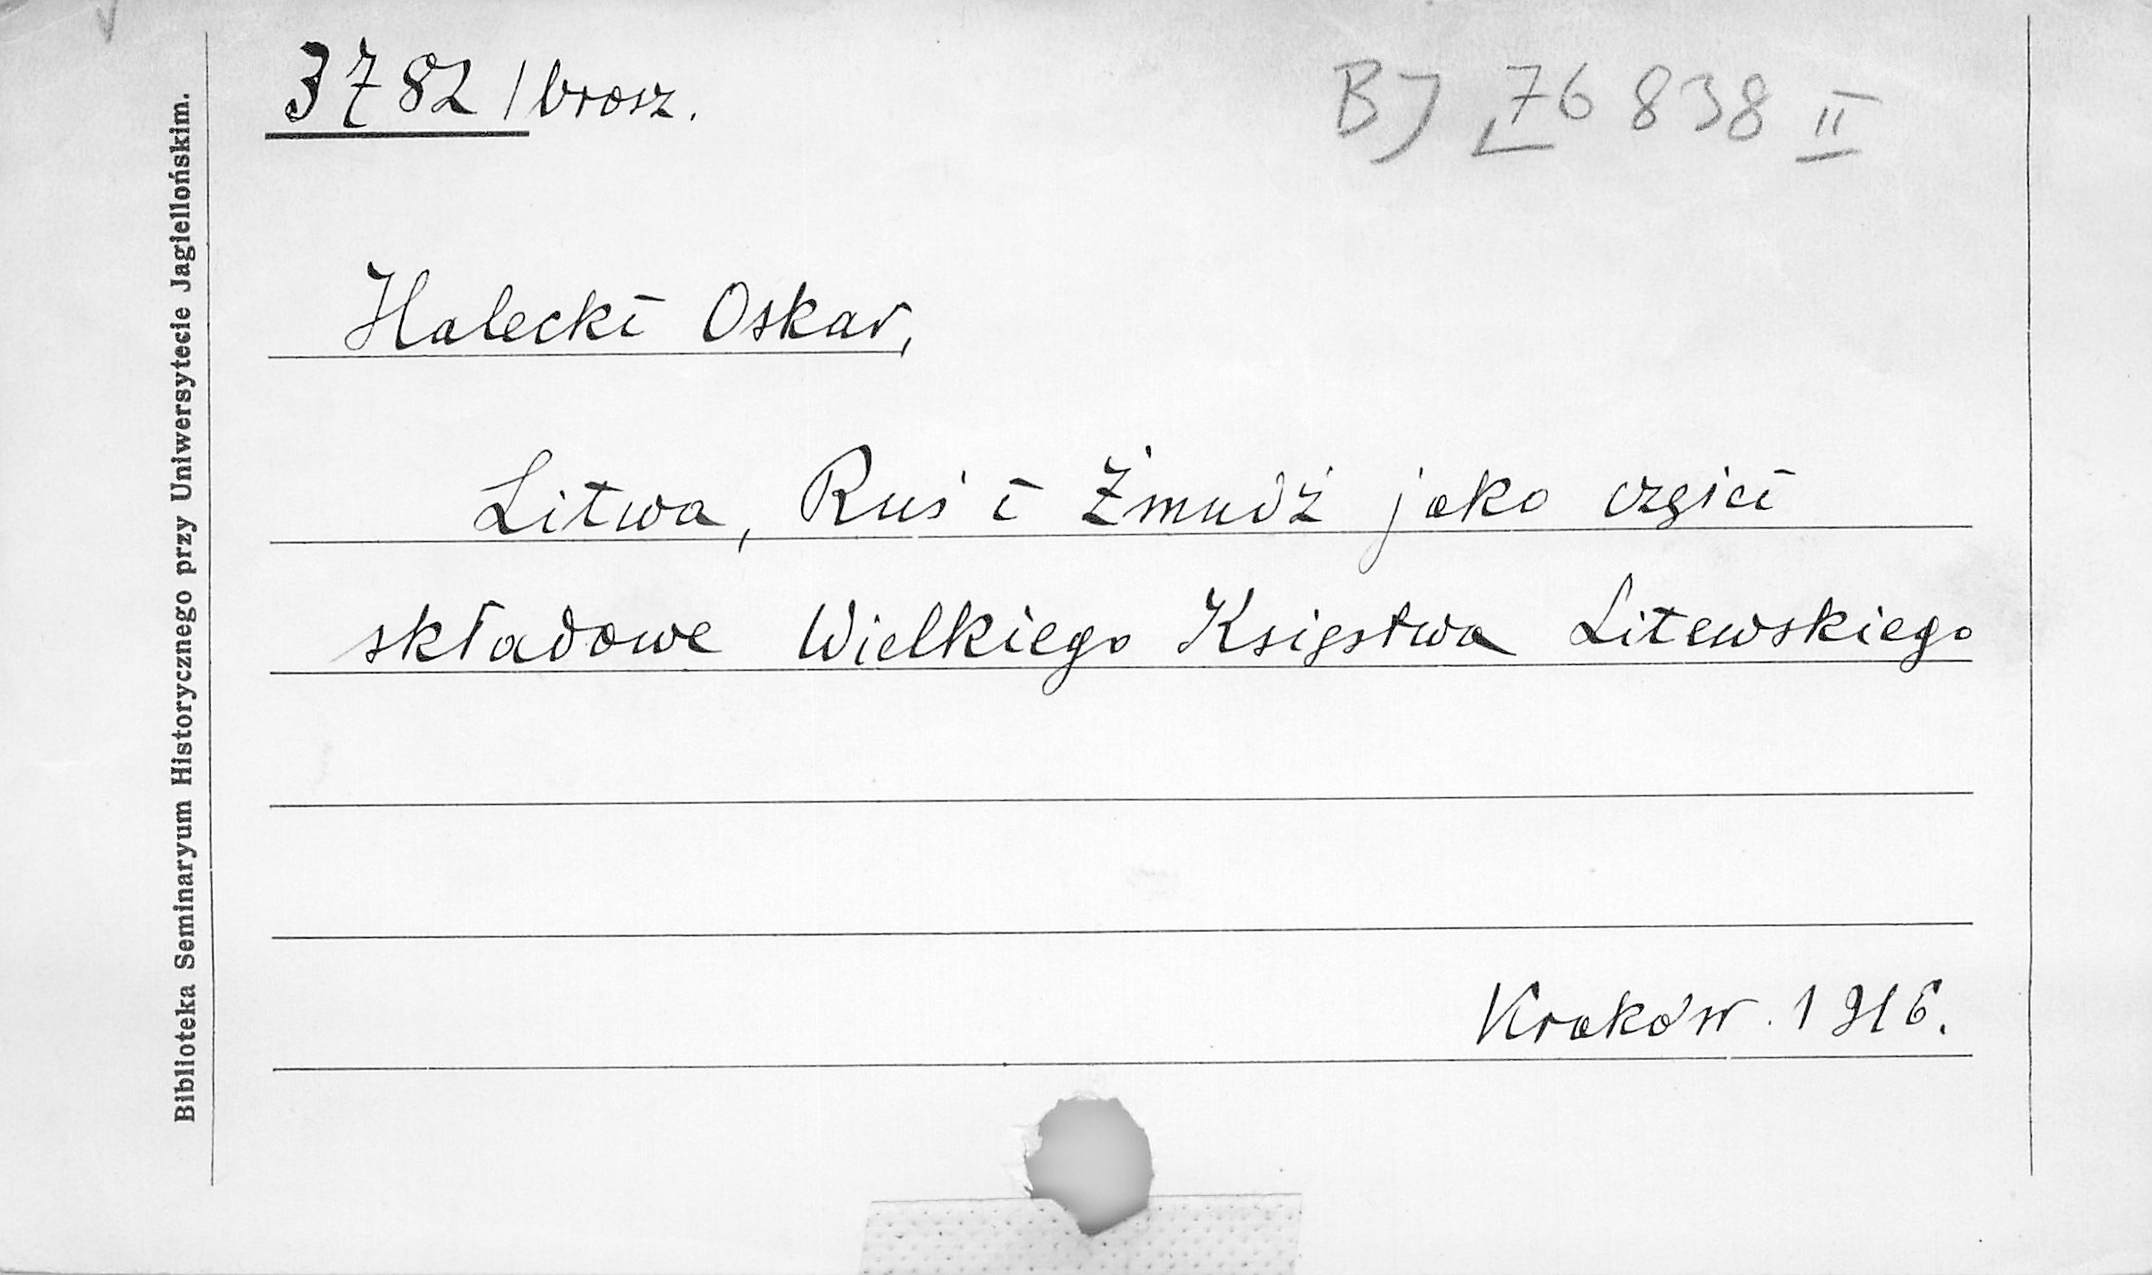 3782/brosz.
BJ 76 838 II
Halecki Oskar,
Litwa, Ruś i Żmudź jako części
składowe Wielkiego Księstwa Litewskiego
Kraków. 1916.
Biblioteka Seminaryum Historycznego przy Uniwersytecie Jagiellońskim.